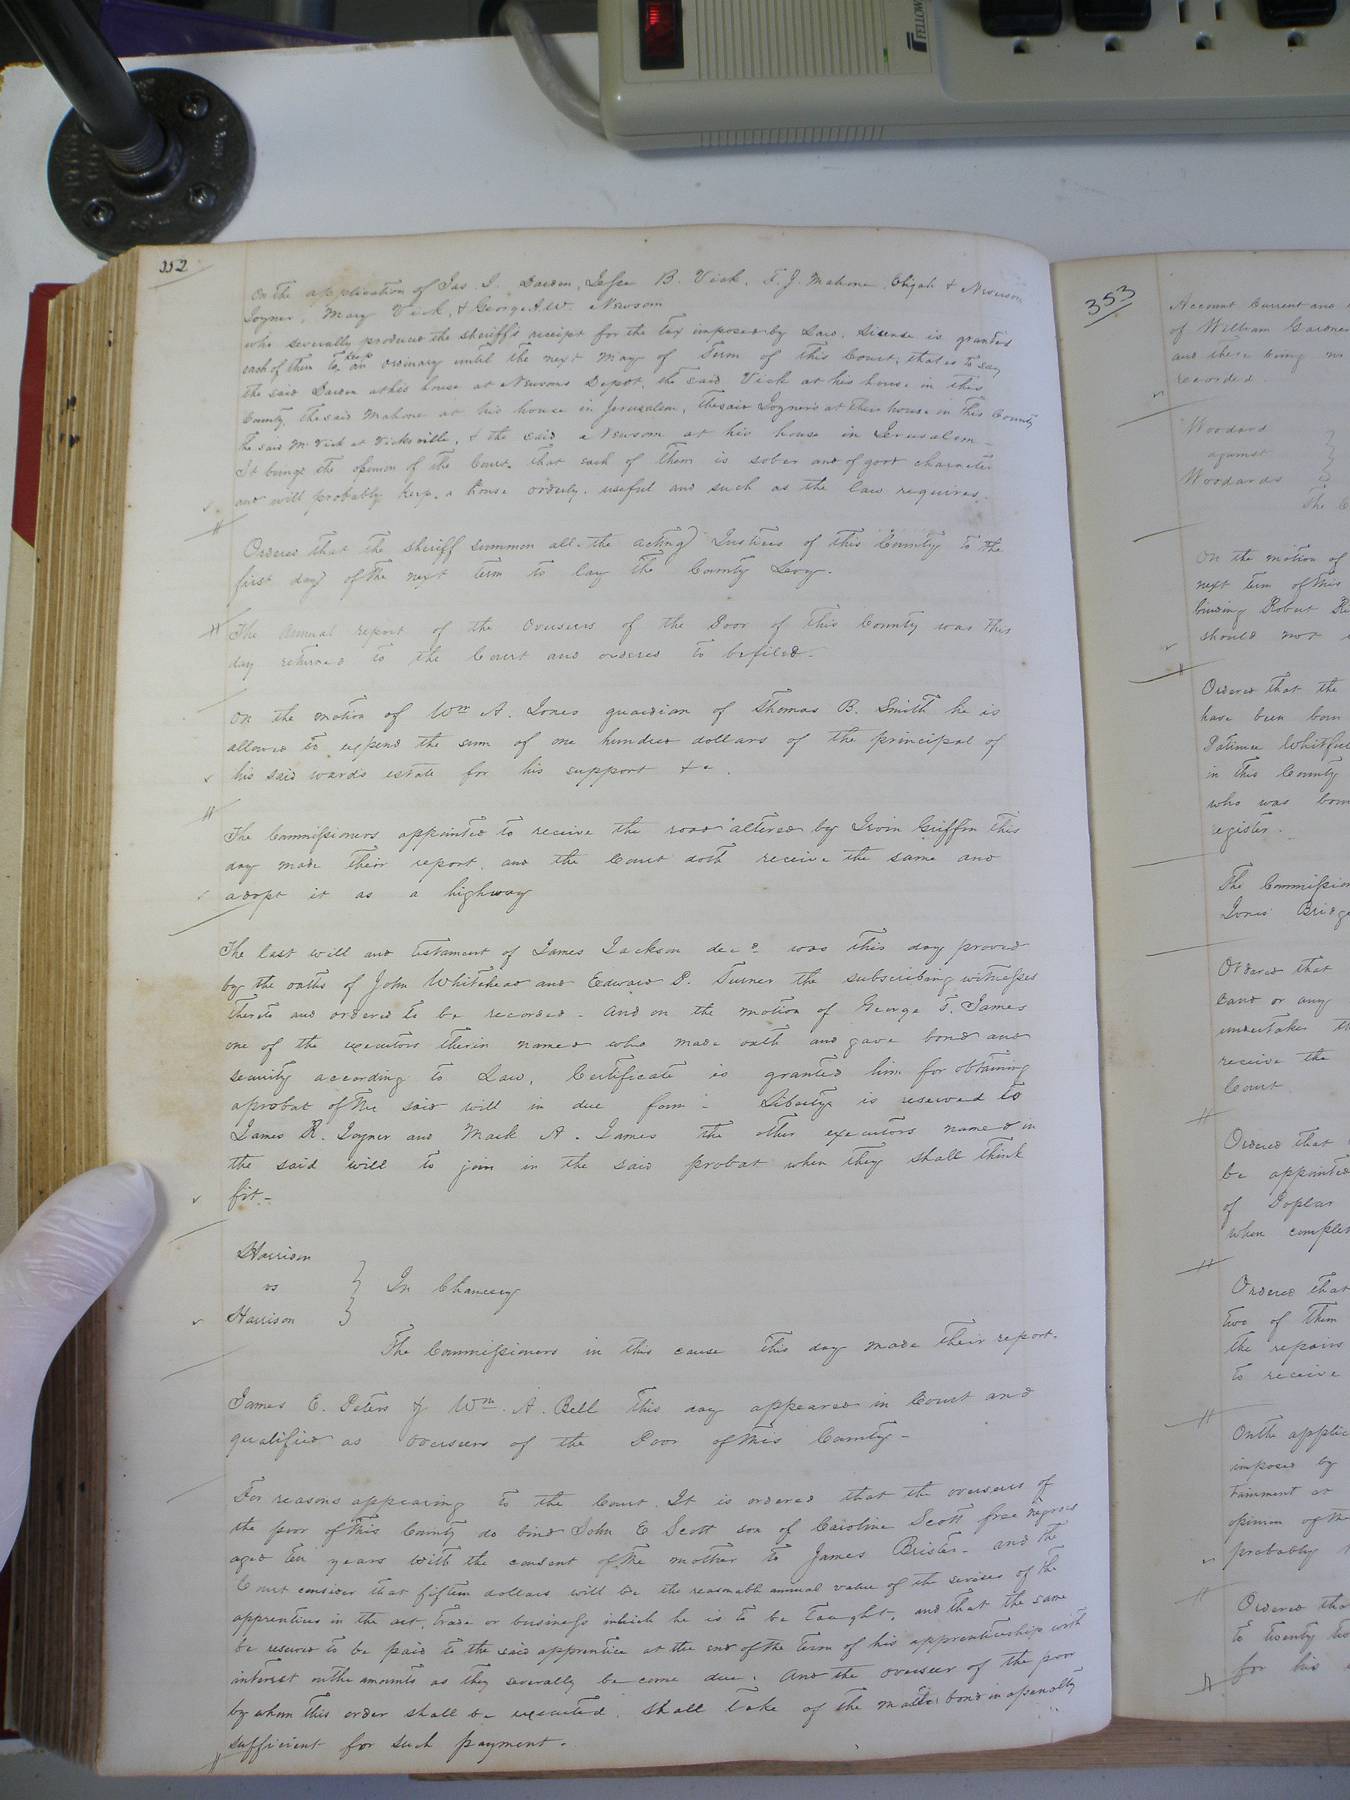 FELLOWES
352
On the application of Jas. S. Darden, Jesse B. Vick, T. J. Mahone, Elijah & Newsom
Joyner, Mary Vick, & George A. W. Newsom
who severally produced the sheriff's receipt for the tax imposed by Law. License is granted
each of them to keep an ordinary until the next May Term of this Court, that is to say
the said Darden at his house at Newsoms Depot, the said Vick at his house in this
County, the said Mahone at his house in Jerusalem, the said Joyner's at their house in this County
the said M. Vick at Vicksville, & the said Newsom at his house in Jerusalem -
It being the opinion of the Court that each of them is sober and of good character
and will probably keep a house orderly, useful and such as the law requires.
Ordered that the sheriff summon all the acting Justices of this County to the
first day of the next term to lay the County Levy.
The annual report of the Overseers of the Poor of this County was this
day returned to the Court and ordered to be filed.
On the motion of Wm A. Jones guardian of Thomas B. Smith he is
allowed to expend the sum of one hundred dollars of the principal of
his said ward's estate for his support &c.
The Commissioners appointed to receive the road altered by Irvin Griffin this
day made their report, and the Court doth receive the same and
adopt it as a highway
The last will and testament of James Jackson decd was this day proved
by the oaths of John Whitehead and Edward P. Turner the subscribing witnesses
thereto and ordered to be recorded - And on the motion of George T. James
one of the executors therein named who made oath and gave bond and
security according to Law, Certificate is granted him for obtaining
a probat of the said will in due form - Liberty is reserved to
James R. Joyner and Mark A. James the other executors named in
the said will to join in the said probat when they shall think
fit -
Harrison
vs } In Chancery
Harrison
The Commissioners in this cause this day made their report.
James E. Peters & Wm. A. Bell this day appeared in Court and
qualified as overseers of the Poor of this County -
For reasons appearing to the Court It is ordered that the overseers of
the poor of this County do bind John E Scott son of Caroline Scott free negroes
aged ten years with the consent of the mother to James Brister - and the
Court consider that fifteen dollars will be the reasonable annual value of the services of the
apprentice in the art, trade or business which he is to be taught, and that the same
be reserved to be paid to the said apprentice at the end of the term of his apprenticeship with
interest on the amounts as they severally become due. And the overseer of the poor
by whom this order shall be executed, shall take of the Master bond in a penalty
sufficient for such payment.
353
Account Current and
of William Gardner
and there being no
recorded.
Woodard
against
Woodards
The C
On the motion of
next term of this
binding Robert
should not
Ordered that the
have been born
Patience Whitfield
in this County
who was born
register.
The Commission
Jones Bridge
Ordered that
Cand or any
undertakes th
receive the
Court.
Ordered that
be appointed
of Poplar
when complet
Ordered that
two of them
the repairs
to receive
On the applic
imposed by
tainment at
opinion of th
probably
Ordered tha
to twenty
for his